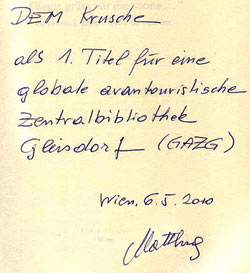 DEM Krusche
als 1. Titel für eine
globale avantouristische
Zentralbibliothek
Gleisdorf (GAZG)
Wien, 6.5.2010